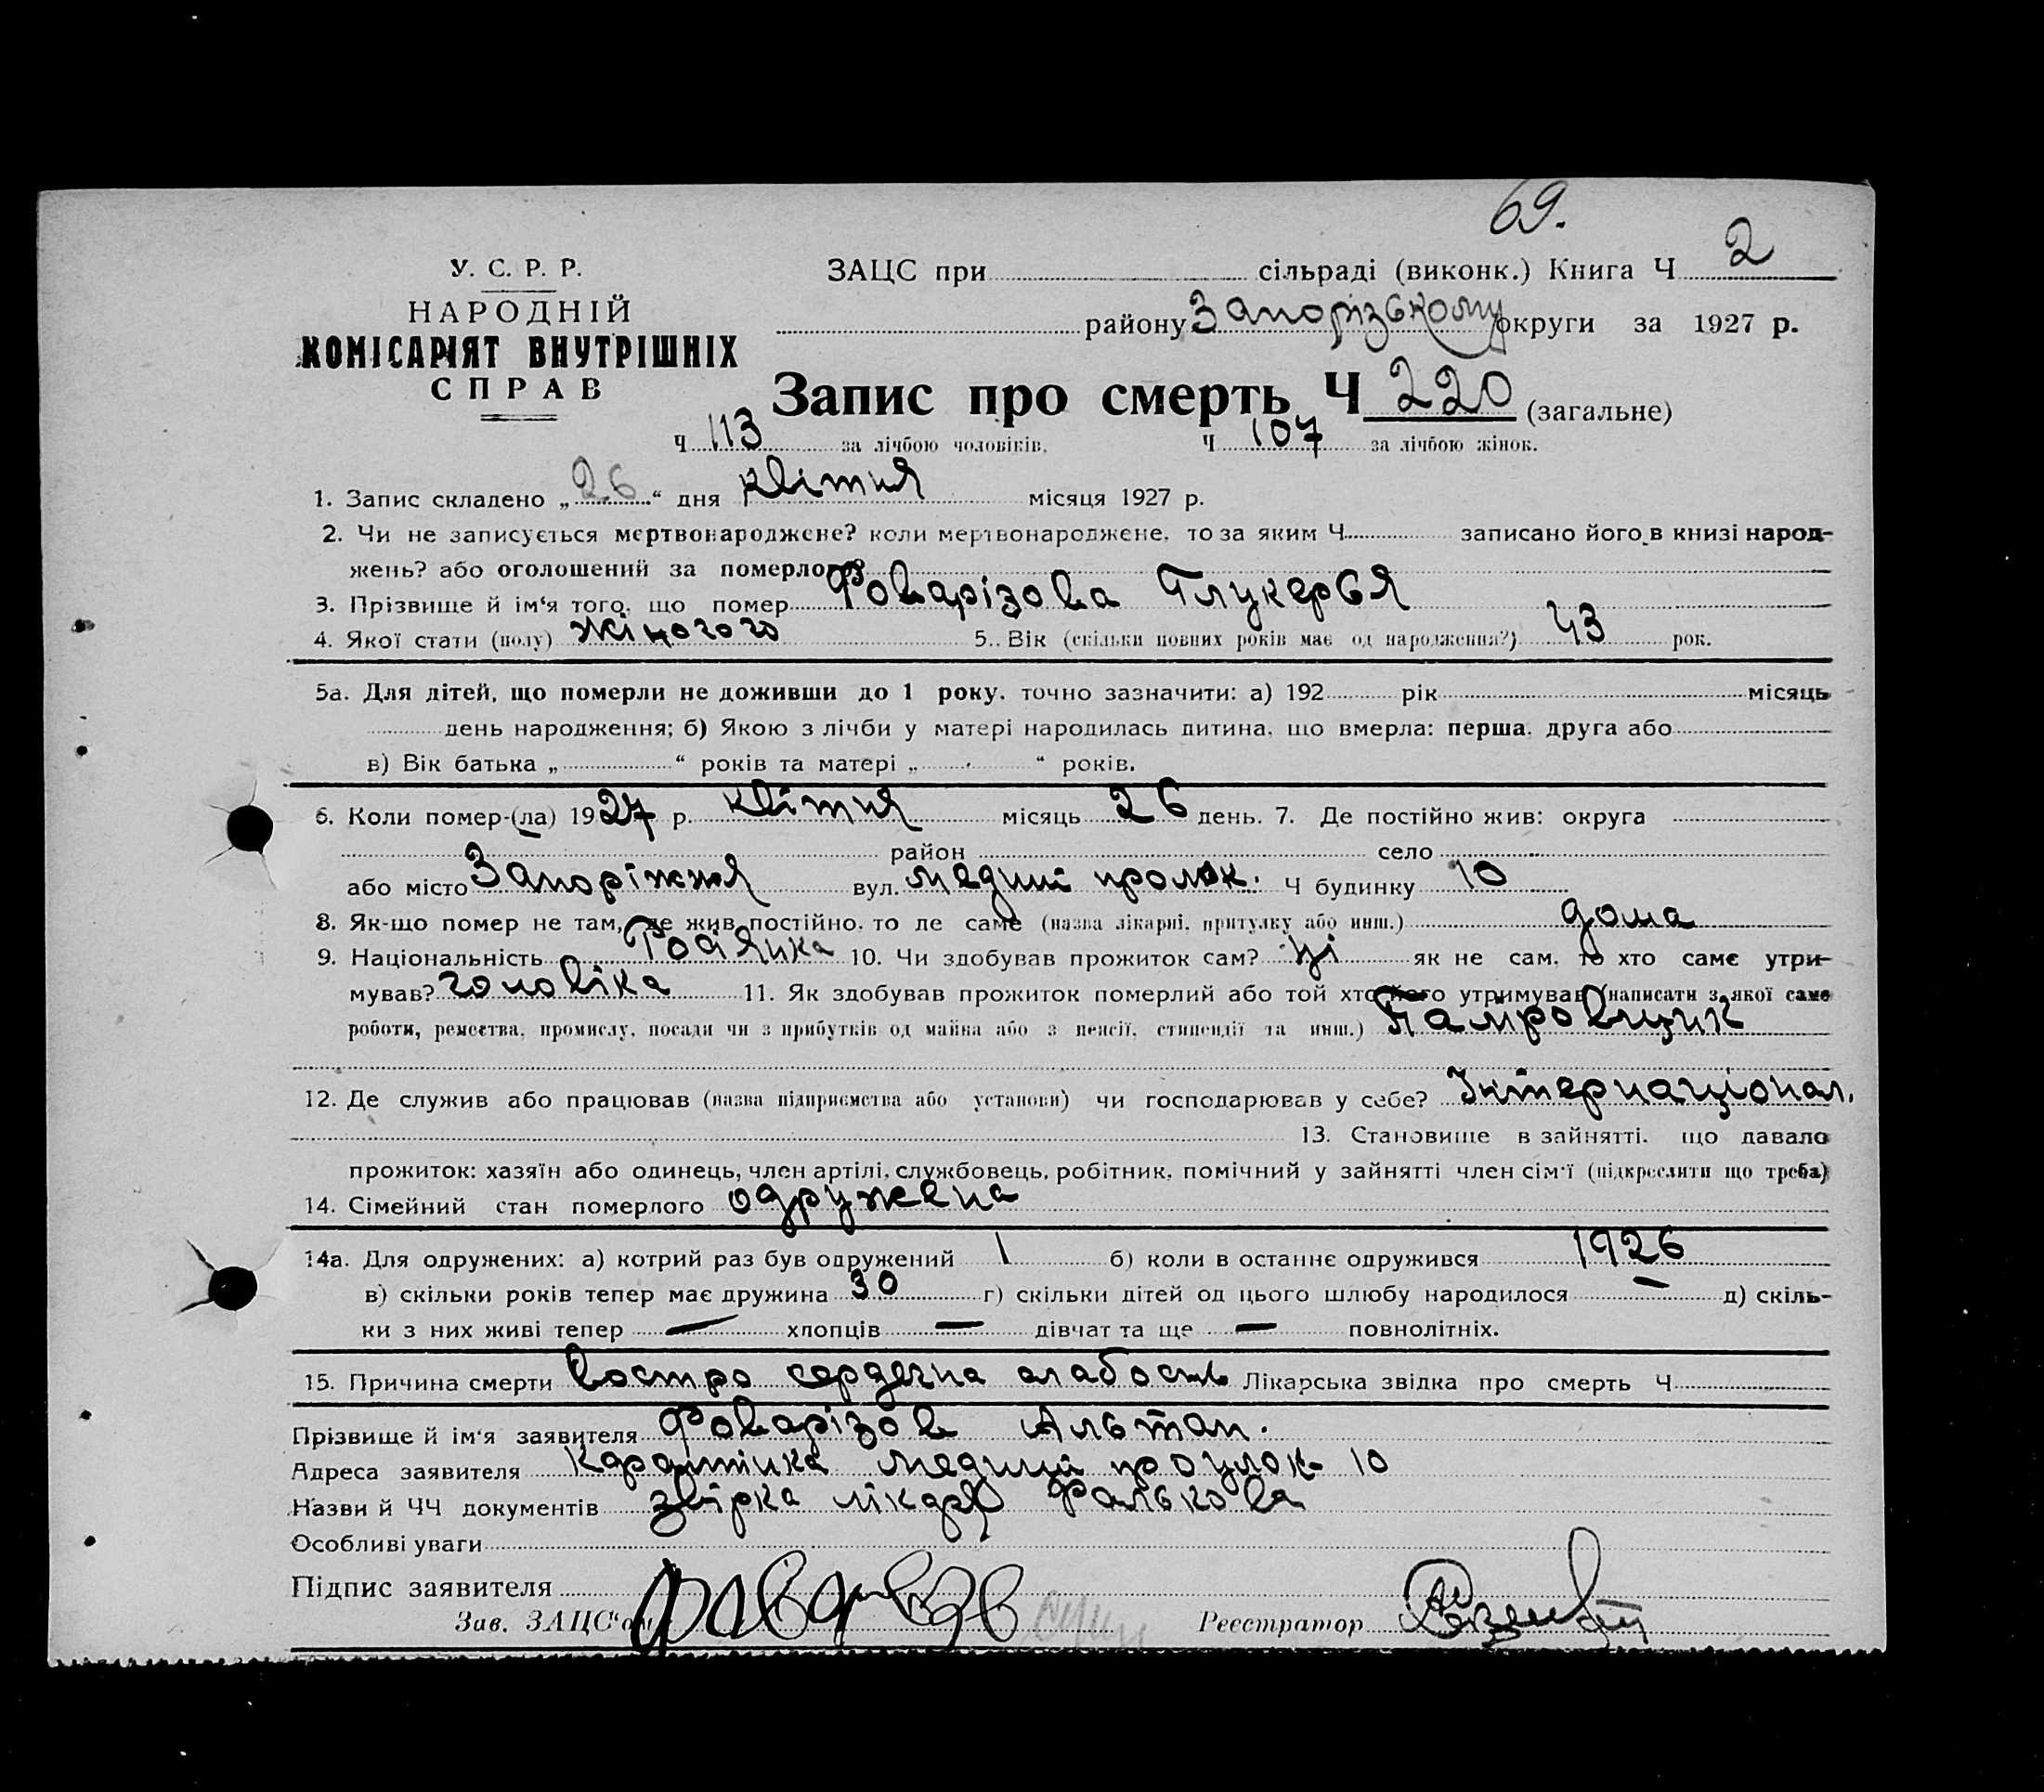 69.
У. С. Р. Р.
НАРОДНІЙ
КОМІСАРІЯТ ВНУТРІШНІХ
СПРАВ
ЗАЦС при сільраді (виконк.) Книга Ч 2
району Запорізькому округи за 1927 р.
Запис про смерть Ч 220 (загальне)
Ч 113 за лічбою чоловіків. Ч 107 за лічбою жінок.
1. Запис складено „26“ дня квітня місяця 1927 р.
2. Чи не записується мертвонароджене? коли мертвонароджене, то за яким Ч записано його в книзі народ-
жень? або оголошений за померлого?
3. Прізвище й ім'я того, що помер Фоварізова Глукерья
4. Якої стати (полу) жіночого 5. Вік (скільки повних років має од народження?) 43 рок.
5а. Для дітей, що померли не доживши до 1 року, точно зазначити: а) 192 рік місяць
день народження; б) Якою з лічби у матері народилась дитина, що вмерла: перша, друга або
в) Вік батька „ “ років та матері „ “ років.
6. Коли помер-(ла) 1927 р. квітня місяць 26 день. 7. Де постійно жив: округа
район село
або місто Запоріжжя вул. Медний Ч будинку 10
8. Як-що помер не там, де жив постійно, то де саме (назва лікарні, притулку або инш.) дома
9. Національність 10. Чи здобував прожиток сам? ні як не сам, то хто саме утри-
мував? чоловіка 11. Як здобував прожиток померлий або той хто його утримував (написати з якої саме
роботи, ремества, промислу, посади чи з прибутків од майна або з пенсії, стипендії та инш.)
12. Де служив або працював (назва підприємства або установи) чи господарював у себе? Інтернаціонал.
13. Становище в зайнятті, що давало
прожиток: хазяїн або одинець, член артілі, службовець, робітник, помічний у зайнятті член сім'ї (підкреслити що треба)
14. Сімейний стан померлого одружена
14а. Для одружених: а) котрий раз був одружений 1 б) коли в останнє одружився 1926
в) скільки років тепер має дружина 30 г) скільки дітей од цього шлюбу народилося — д) скіль-
ки з них живі тепер — хлопців — дівчат та ще — повнолітніх.
15. Причина смерти востро сердечна слабость Лікарська звідка про смерть Ч
Прізвище й ім'я заявителя Фоварізов Альтан.
Адреса заявителя Карантінка Медний проулок 10
Назви й ЧЧ документів звірка лікаря Фалькова
Особливі уваги
Підпис заявителя
Зав. ЗАЦС'ом Реєстратор